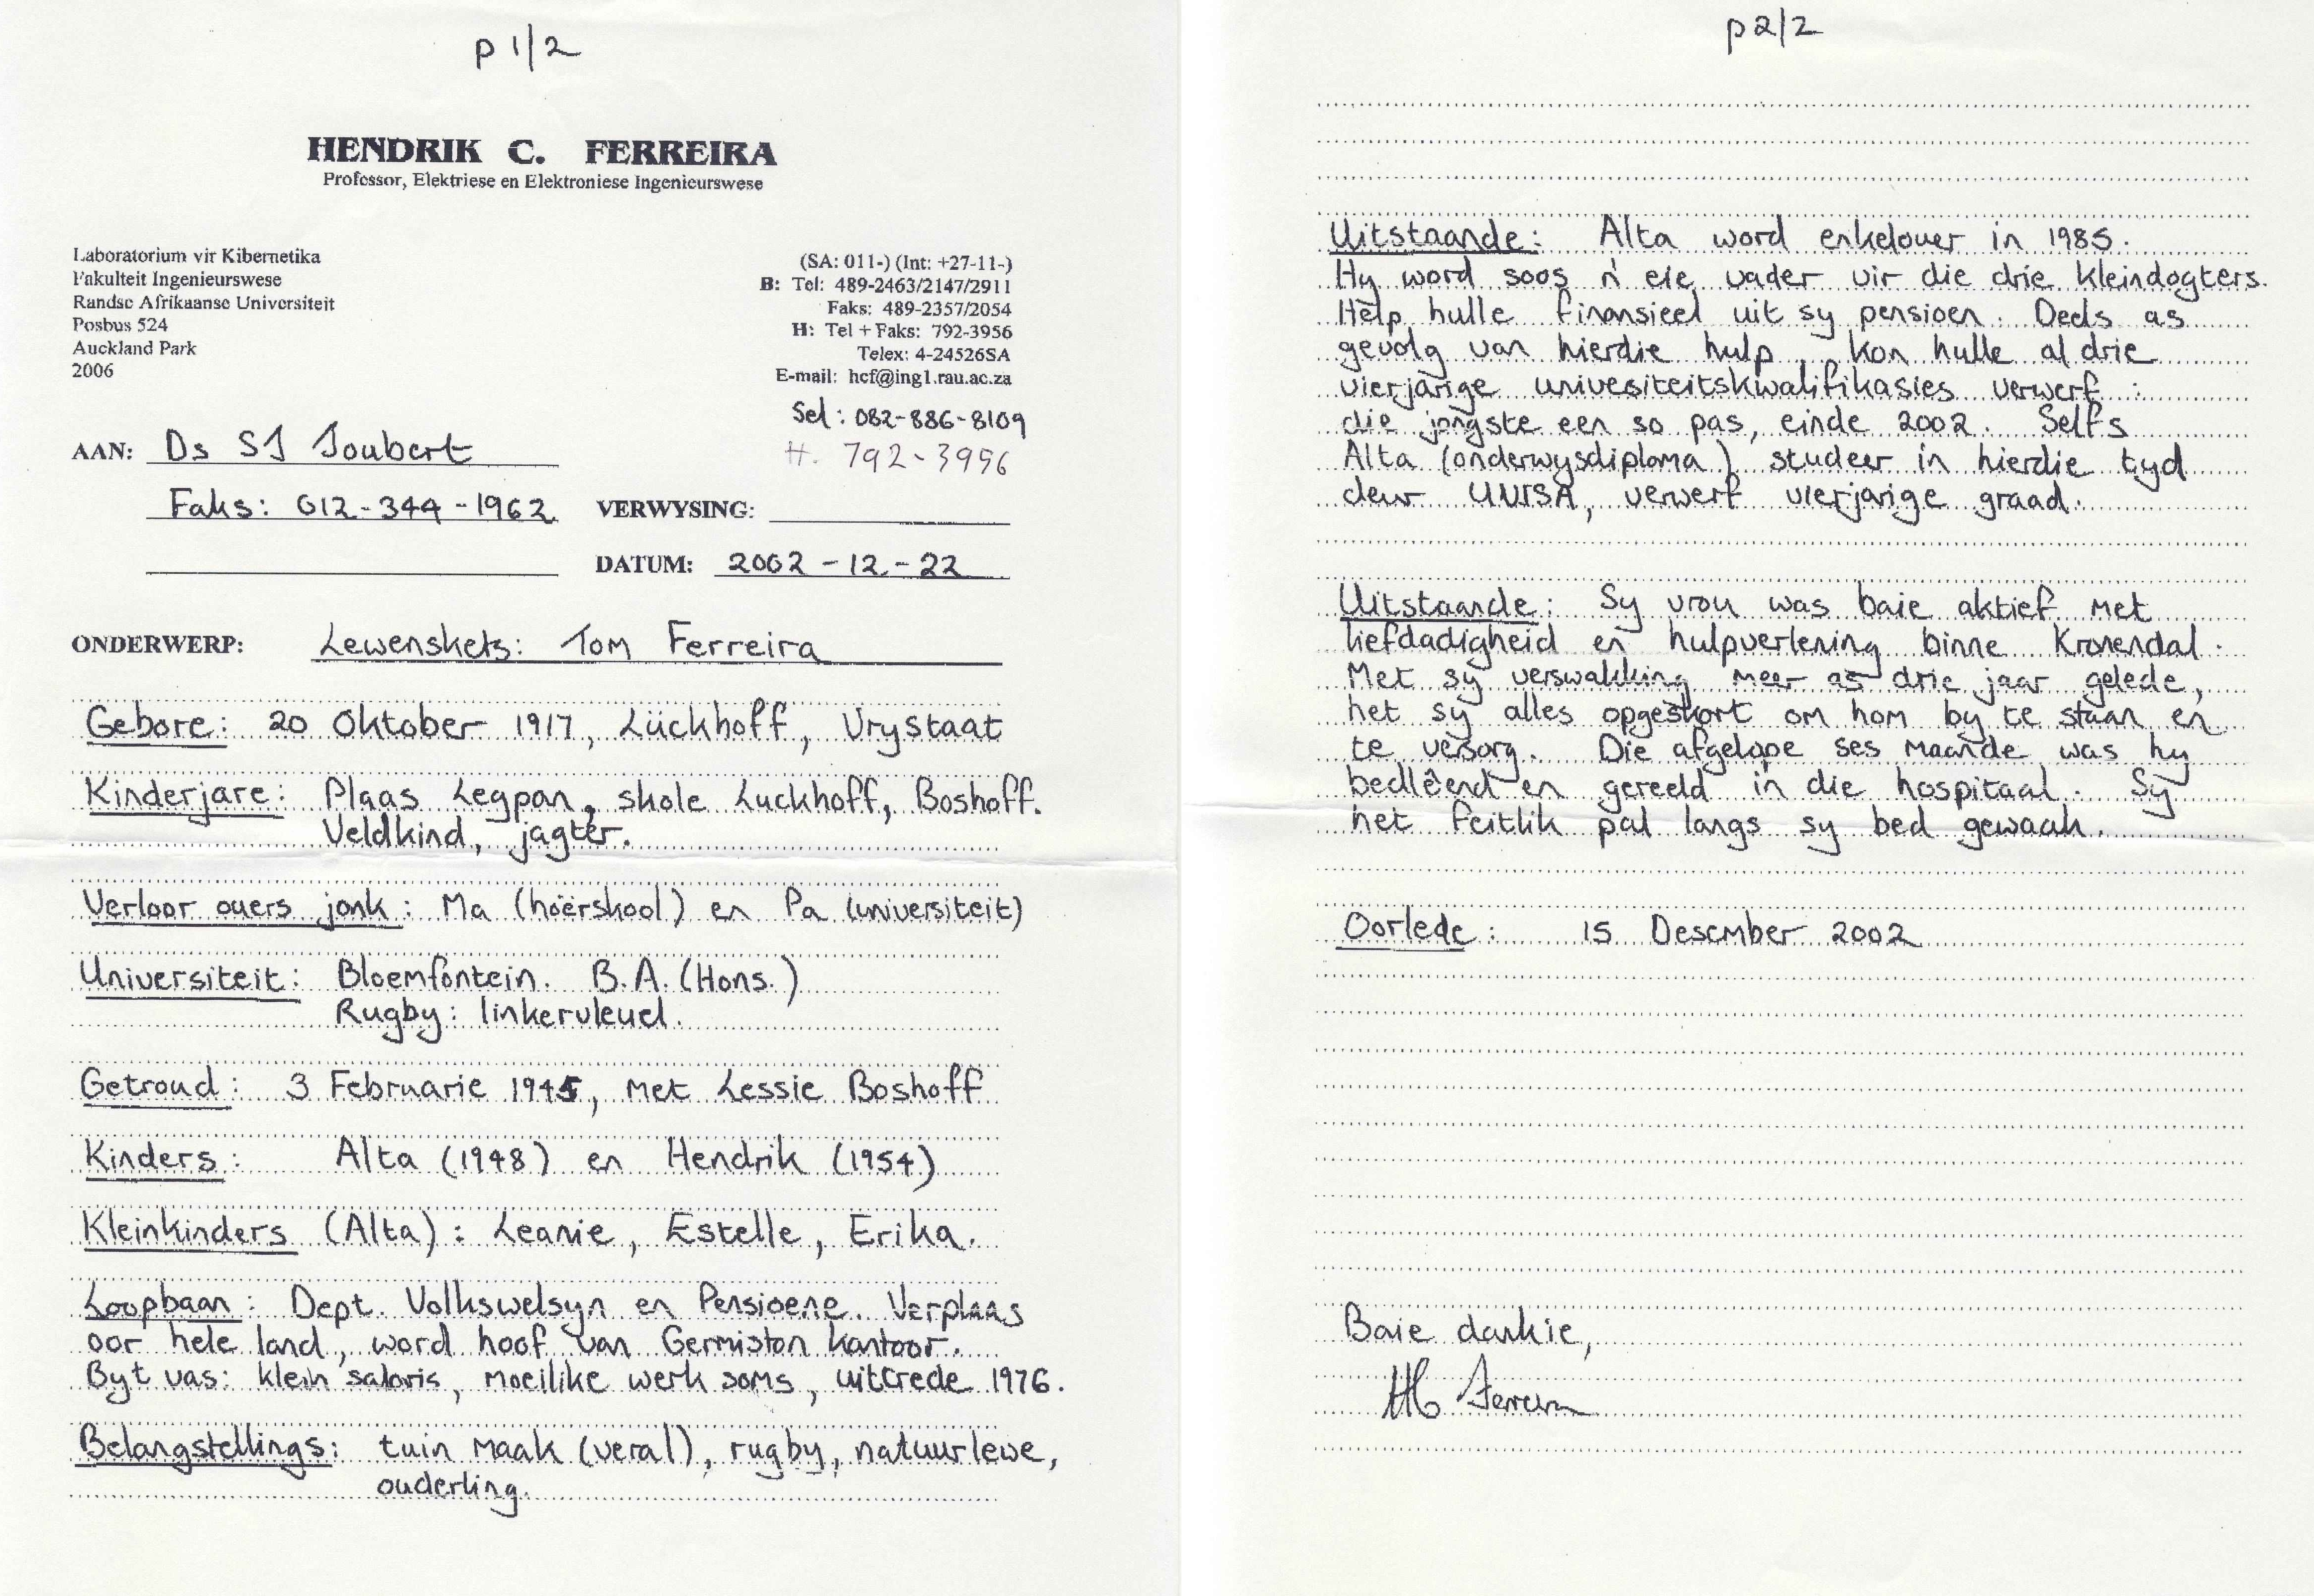 p 1/2
HENDRIK C. FERREIRA
Professor, Elektriese en Elektroniese Ingenieurswese
Laboratorium vir Kibernetika
Fakulteit Ingenieurswese
Randse Afrikaanse Universiteit
Posbus 524
Auckland Park
2006
(SA: 011-) (Int: +27-11-)
B: Tel: 489-2463/2147/2911
Faks: 489-2357/2054
H: Tel + Faks: 792-3956
Telex: 4-24526SA
E-mail: hcf@ing1.rau.ac.za
Sel: 082-886-8109
H. 792-3956
AAN: Ds SJ Joubert
Faks: 012-344-1962 VERWYSING:
DATUM: 2002-12-22
ONDERWERP: Lewenskets: Tom Ferreira
Gebore: 20 Oktober 1917, Lückhoff, Vrystaat
Kinderjare: Plaas Legpan, skole Luckhoff, Boshoff.
Veldkind, jagter.
Verloor ouers jonk: Ma (hoërskool) en Pa (universiteit)
Universiteit: Bloemfontein. B.A. (Hons.)
Rugby: linkervleuel.
Getroud: 3 Februarie 1945, met Lessie Boshoff
Kinders: Alta (1948) en Hendrik (1954)
Kleinkinders (Alta): Leanie, Estelle, Erika.
Loopbaan: Dept. Volkswelsyn en Pensioene. Verplaas
oor hele land, word hoof van Germiston kantoor.
Byt vas: klein salaris, moeilike werk soms, uittrede 1976.
Belangstellings: tuin maak (veral), rugby, natuurlewe,
ouderling.
p 2/2
Uitstaande: Alta word enkelouer in 1985.
Hy word soos 'n eie vader vir die drie kleindogters.
Help hulle finansieel uit sy pensioen. Deels as
gevolg van hierdie hulp, kon hulle al drie
vierjarige univesiteitskwalifikasies verwerf:
die jongste een so pas, einde 2002. Selfs
Alta (onderwysdiploma) studeer in hierdie tyd
deur UNISA, verwerf vierjarige graad.
Uitstaande: Sy vrou was baie aktief met
liefdadigheid en hulpverlening binne Kronendal.
Met sy verswakking meer as drie jaar gelede,
het sy alles opgeskort om hom by te staan en
te versorg. Die afgelope ses maande was hy
bedlêend en gereeld in die hospitaal. Sy
het feitlik pal langs sy bed gewaak.
Oorlede: 15 Desember 2002
Baie dankie,
HC Ferreira